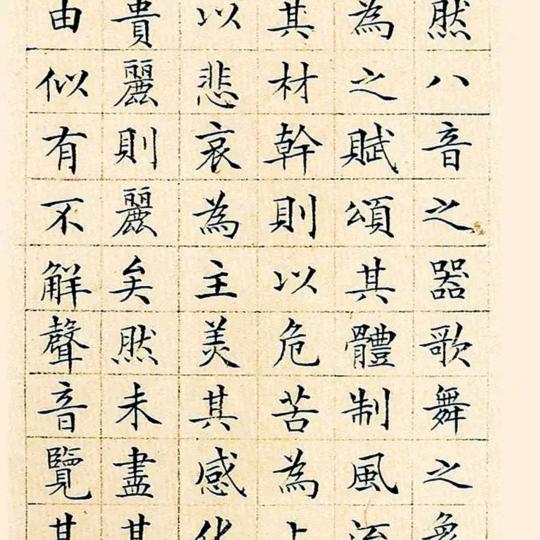 然八音之器歌舞之象
為之賦頌其體制風流
其材幹則以危苦為上
以悲哀為主美其感化
貴麗則麗矣然未盡其
由似有不解聲音覽其